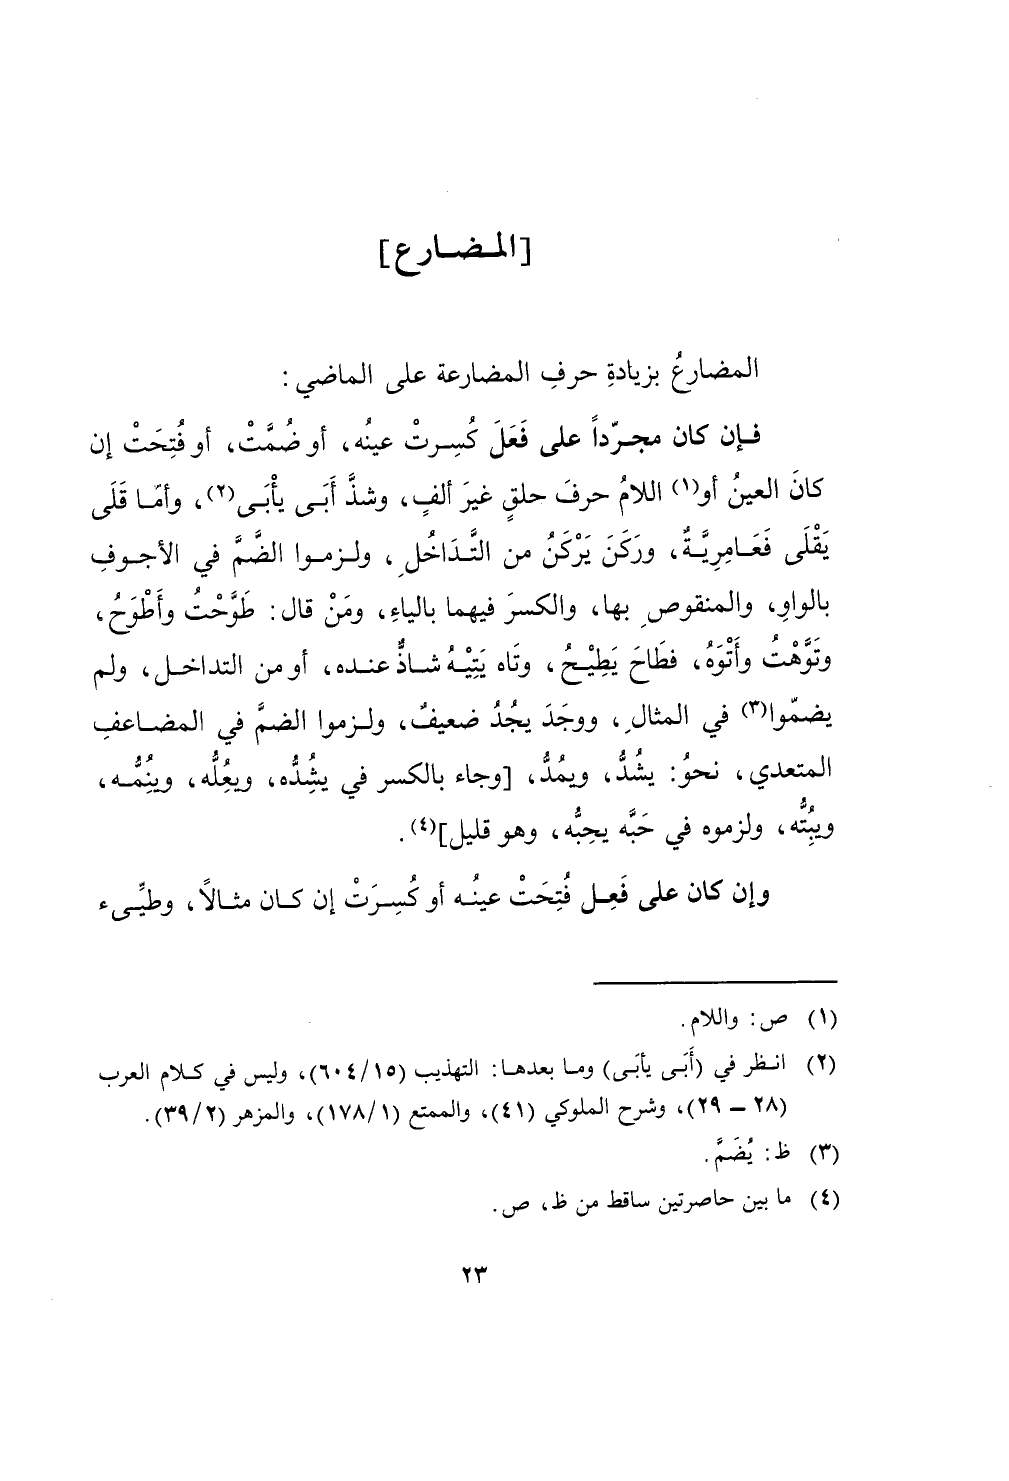 [المضارع]
المضارعُ بزيادةِ حرفِ المضارعة على الماضي:
فإن كان مجرّداً على فَعَلَ كُسِرتْ عينُه، أو ضُمَّتْ، أو فُتِحَتْ إن
كانَ العينُ أو(١) اللامُ حرفَ حلقٍ غيرَ ألفٍ، وشذَّ أَبَى يأْبَى(٢)، وأمّا قَلَى
يَقْلَى فَعَامِرِيَّةٌ، ورَكَنَ يَرْكَنُ من التَّدَاخُلِ، ولزموا الضَّمَّ في الأجوفِ
بالواوِ، والمنقوصِ بها، والكسرَ فيهما بالياءِ، ومَنْ قال: طَوَّحْتُ وأَطْوَحُ،
وتَوَّهْتُ وأَتْوَهُ، فطَاحَ يَطِيْحُ، وتَاه يَتِيْهُ شاذٌّ عنده، أو من التداخل، ولم
يضمّوا(٣) في المثالِ، ووجَدَ يجُدُ ضعيفٌ، ولزموا الضمَّ في المضاعفِ
المتعدي، نحوُ: يشُدُّ، ويمُدُّ، [وجاء بالكسر في يشُِدُّه، ويعُِلُّه، وينُِمُّه،
ويبُِتُّه، ولزموه في حَبَّه يحِبُّه، وهو قليل](٤).
وإن كان على فَعِل فُتِحَتْ عينُه أو كُسِرَتْ إن كان مثالاً، وطيِّىء
(١) ص: واللام.
(٢) انظر في (أَبَى يأبَى) وما بعدها: التهذيب (٦٠٤/١٥)، وليس في كلام العرب
(٢٨ – ٢٩)، وشرح الملوكي (٤١)، والممتع (١٧٨/١)، والمزهر (٣٩/٢).
(٣) ظ: يُضَمَّ.
(٤) ما بين حاصرتين ساقط من ظ، ص.
٢٣